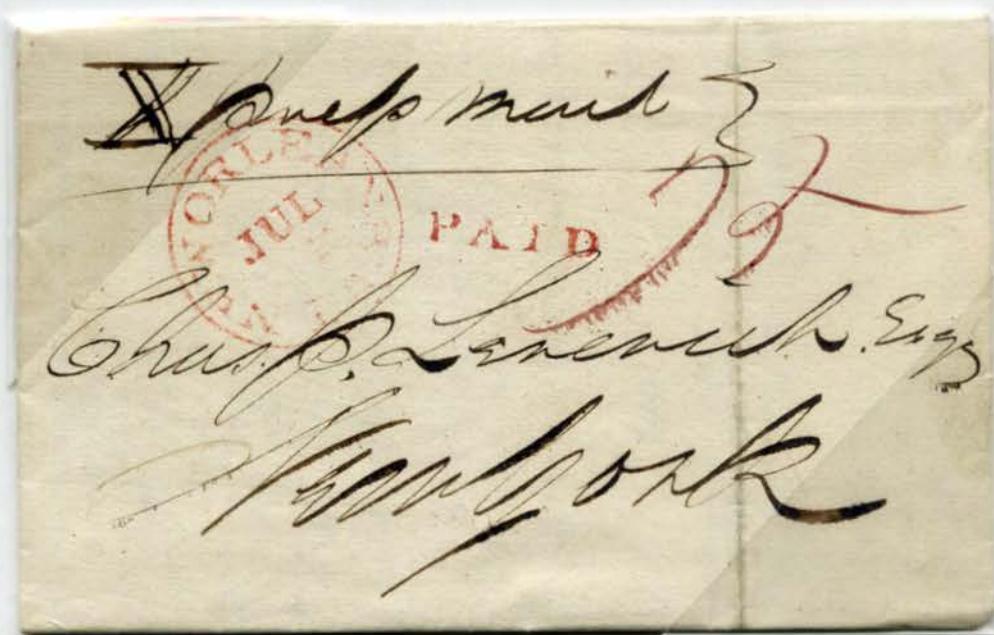 Express Mail
N ORLEANS
JUL
LA
PAID
75
Chas. P. Leverich. Esqr
New York